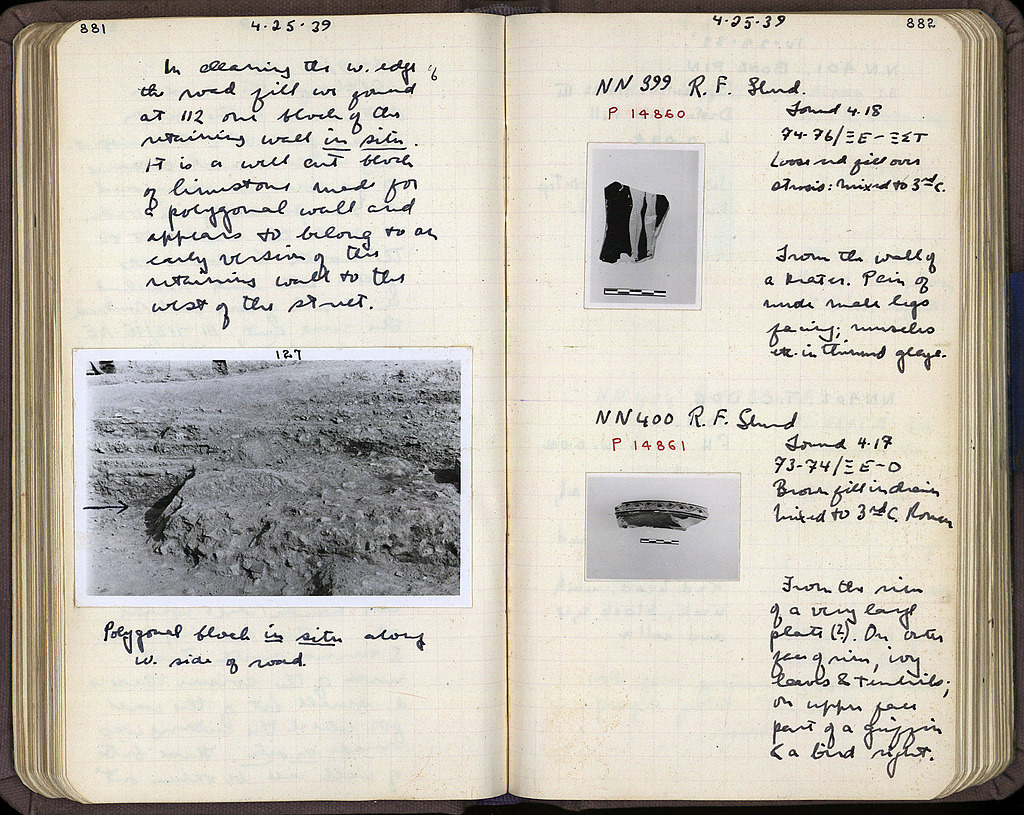 881
4-25-39
In cleaning the w. edge of
the road fill we found
at 112 one block of the
retaining wall in situ.
It is a well cut block
of limestone made for
a polygonal wall and
appears to belong to an
early version of the
retaining wall to the
west of the street.
127
Polygonal block in situ along
w. side of road.
4-25-39
882
NN 399 R. F. Sherd.
P 14860
Found 4.18
74-76/ΞE-ΞΣT
Loose red fill over
strosis: mixed to 3rd C.
From the wall of
a krater. Pair of
nude male legs
facing; muscles
etc. in thinned glaze.
NN400 R. F. Sherd
P 14861
Found 4.17
73-74/ΞE-O
Brown fill in drain
mixed to 3rd C. Roman
From the rim
of a very large
plate (?). On outer
face of rim, ivy
leaves & tendrils;
on upper face
part of a griffin
& a bird right.